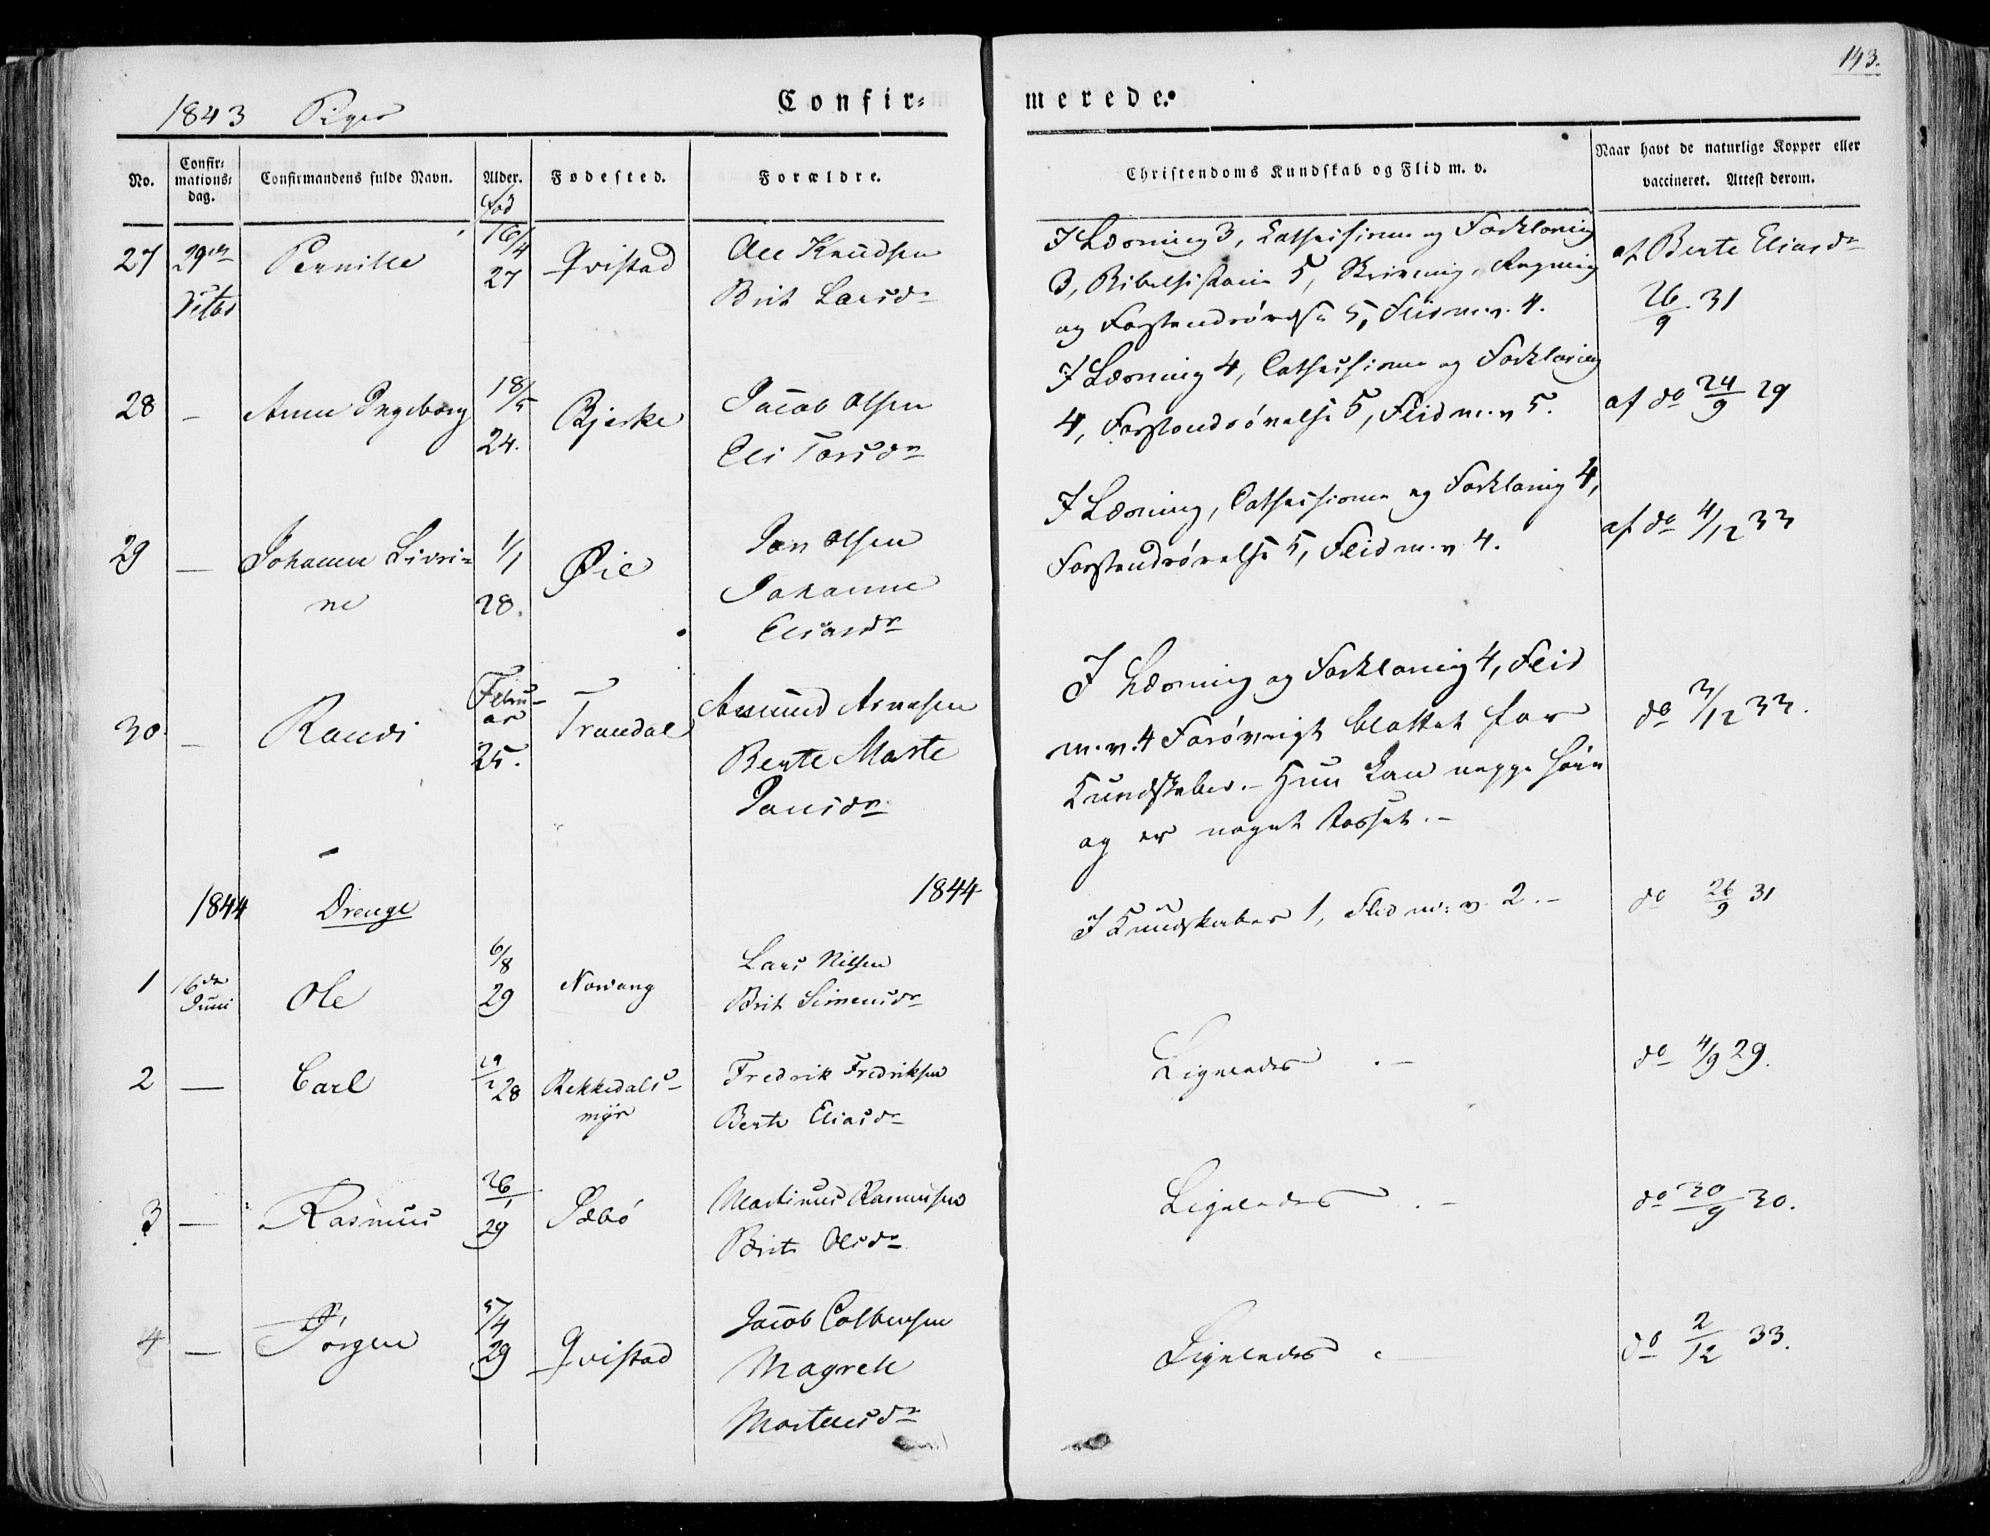 143.
1843 Piger
Confir=
merede.
No.
Confir=
mations=
dag.
Confirmandens fulde Navn.
Alder.
Fødested.
Forældre.
Christendoms Kundskab og Flid m. v.
Naar havt de naturlige Kopper eller
vaccineret. Attest derom.
fød
27 29de Pernille 16/4 Qvistad Ole Knudsen
27 Brit Larsdr
I Læsning 3, Cathechisme og Forklaring
3, Bibelhistorie 5, Skrivning, Regning
og Forstandsøvelse 5, Flid m.v. 4.
af Berte Eliasdr
26/9 31
28 - Anne Ingeborg 18/5 Bjerke Jacob Olsen
24. Eli Larsdr
I Læsning 4, Cathechisme og Forklaring
4, Forstandsøvelse 5, Flid m.v 5.
af do 24/9 29
29 - Johanne Sivri=
ne
1/1 Øie Jon Olsen
28. Johanne
Eliasdr
I Læsning, Cathechisme og Forklaring 4,
Forstandsøvelse 5, Flid m.v 4.
af do 4/12 33
30. - Randi Febru-
ar
25.
Trandal Amund Arnesen
Berte Marte
Jonsdr
I Læsning og Forklaring 4, Flid
m.v. 4 Forøvrigt blottet for
Kundskaber. - Hun kan neppe høre
og er noget tosset. -
do 3/12 33.
1844 Drenge 1844
1 16de Ole 6/8 Norvang Lars Nilsen
Juni 29 Brit Simensdr
I Kundskaber 1, Flid m: v. 2. -
do 26/9 31
2 - Carl 28 Rekkedals-
myr
Fredrik Fredriksen
Berte Eliasdr
Ligeledes . -
do 4/9 29.
3 - Rasmus 26/1 Sæbø Martinus Rasmusen
29 Brit Olsdr
Ligeledes . -
do 30/9 30.
4 - Jørgen 5/4 Qvistad Jacob Colbensen
29 Magrete
Martensdr
Ligeledes . -
do 2/12 33.